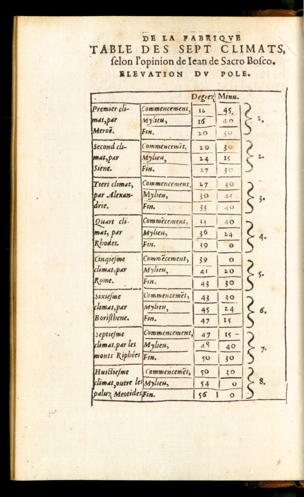 DE LA FABRIQVE
TABLE DES SEPT CLIMATS,
selon l'opinion de Iean de Sacro Bosco.
ELEVATION DV POLE.
Degrez Minu.
Premier cli- Commencement, 12 45
mat, par Mylieu, 16 40 1.
Meroë. Fin. 20 30
Second cli- Commencemẽt, 20 30
mat, par Mylieu, 24 15 2.
Siene. Fin. 27 30
Tiers climat, Commencement, 27 30
par Alexan- Mylieu, 30 3.
drie. Fin. 33 40
Quart cli- Commẽcement, 33 40
mat, par Mylieu, 36 24 4.
Rhodes. Fin. 39 0
Cinqiesme Commẽcement, 39 0
climat, par Mylieu, 41 20 5.
Rome. Fin. 43 30
Sixiesme Commencemẽt, 43 30
climat, par Mylieu, 45 24 6.
Boristhene. Fin. 47 15
Septiesme Commencement, 47 15
climat, par les Mylieu, 48 40 7.
monts Riphées Fin. 50 30
Huictiesme Commencemẽt, 50 30
climat, outre les Mylieu, 54 0 8.
palux Meotides Fin. 56 0